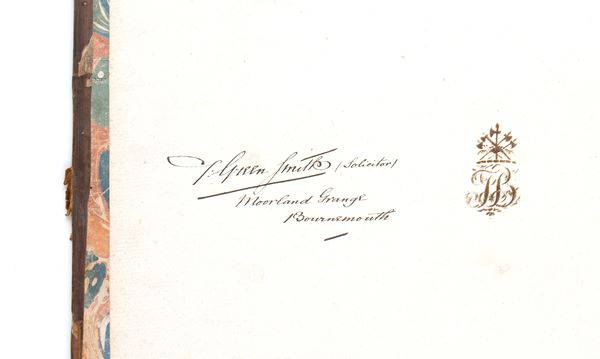 T. Green Smith (Solicitor)
Moorland Grange
Bournemouth